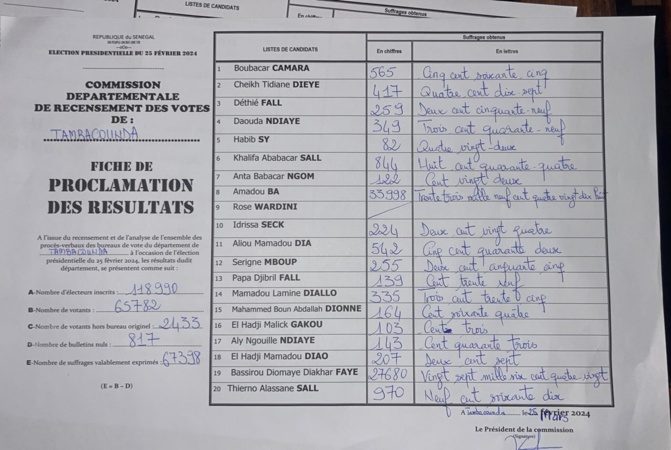 LISTES DE CANDIDATS
Suffrages obtenus
En chiffres
RÉPUBLIQUE DU SÉNÉGAL
ELECTION PRESIDENTIELLE DU 25 FÉVRIER 2024
COMMISSION
DEPARTEMENTALE
DE RECENSEMENT DES VOTES
DE :
TAMBACOUNDA
FICHE DE
PROCLAMATION
DES RESULTATS
A l'issue du recensement et de l'analyse de l'ensemble des
procès-verbaux des bureaux de vote du département de
TAMBACOUNDA à l'occasion de l'élection
présidentielle du 25 février 2024, les résultats dudit
département, se présentent comme suit :
A-Nombre d'électeurs inscrits : 118990
B-Nombre de votants : 65782
C-Nombre de votants hors bureau originel : 2433
D-Nombre de bulletins nuls : 817
E-Nombre de suffrages valablement exprimés 67398
(E = B - D)
LISTES DE CANDIDATS
Suffrages obtenus
En chiffres En lettres
1 Boubacar CAMARA 565 Cinq cent soixante cinq
2 Cheikh Tidiane DIEYE 417 Quatre cent dix sept
3 Déthié FALL 259 Deux cent cinquante-neuf
4 Daouda NDIAYE 349 Trois cent quarante-neuf
5 Habib SY 82 Quatre vingt-deux
6 Khalifa Ababacar SALL 844 Huit cent quarante-quatre
7 Anta Babacar NGOM 122 Cent vingt deux
8 Amadou BA 33998 Trente trois mille neuf cent quatre vingt dix huit
9 Rose WARDINI
10 Idrissa SECK 224 Deux cent vingt quatre
11 Aliou Mamadou DIA 542 Cinq cent quarante deux
12 Serigne MBOUP 255 Deux cent cinquante cinq
13 Papa Djibril FALL 139 Cent trente neuf
14 Mamadou Lamine DIALLO 335 Trois cent trente cinq
15 Mahammed Boun Abdallah DIONNE 164 Cent soixante quatre
16 El Hadji Malick GAKOU 103 Cent trois
17 Aly Ngouille NDIAYE 143 Cent quarante trois
18 El Hadji Mamadou DIAO 207 Deux cent sept
19 Bassirou Diomaye Diakhar FAYE 27680 Vingt sept mille six cent quatre-vingt
20 Thierno Alassane SALL 970 Neuf cent soixante dix
A Tambacounda le 25 février 2024
Mars
Le Président de la commission
(Signature)